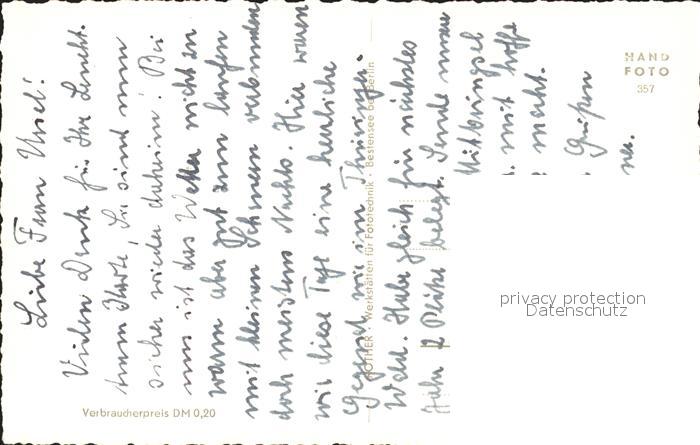 Liebe Frau Unsel!
Vielen Dank für Ihre Ansicht.
karte, Sie sind nun
sicher wieder daheim! Bei
uns ist das Wetter nicht zu
warm aber gut zum laufen
mit kleinen Schmerzen verbunden
doch meistens Nachts. Hier waren
wir diese Tage eine herrliche
Gegend, wie im Thüringer
Wald. Habe gleich für nächstes
Jahr 2 Plätze belegt. Sende
Mitbringsel
mit hoffe
macht.
Grüßen
HAND
FOTO
357
ROTHER · Werkstätten für Fototechnik · Bestensee bei Berlin
Verbraucherpreis DM 0,20
privacy protection
Datenschutz